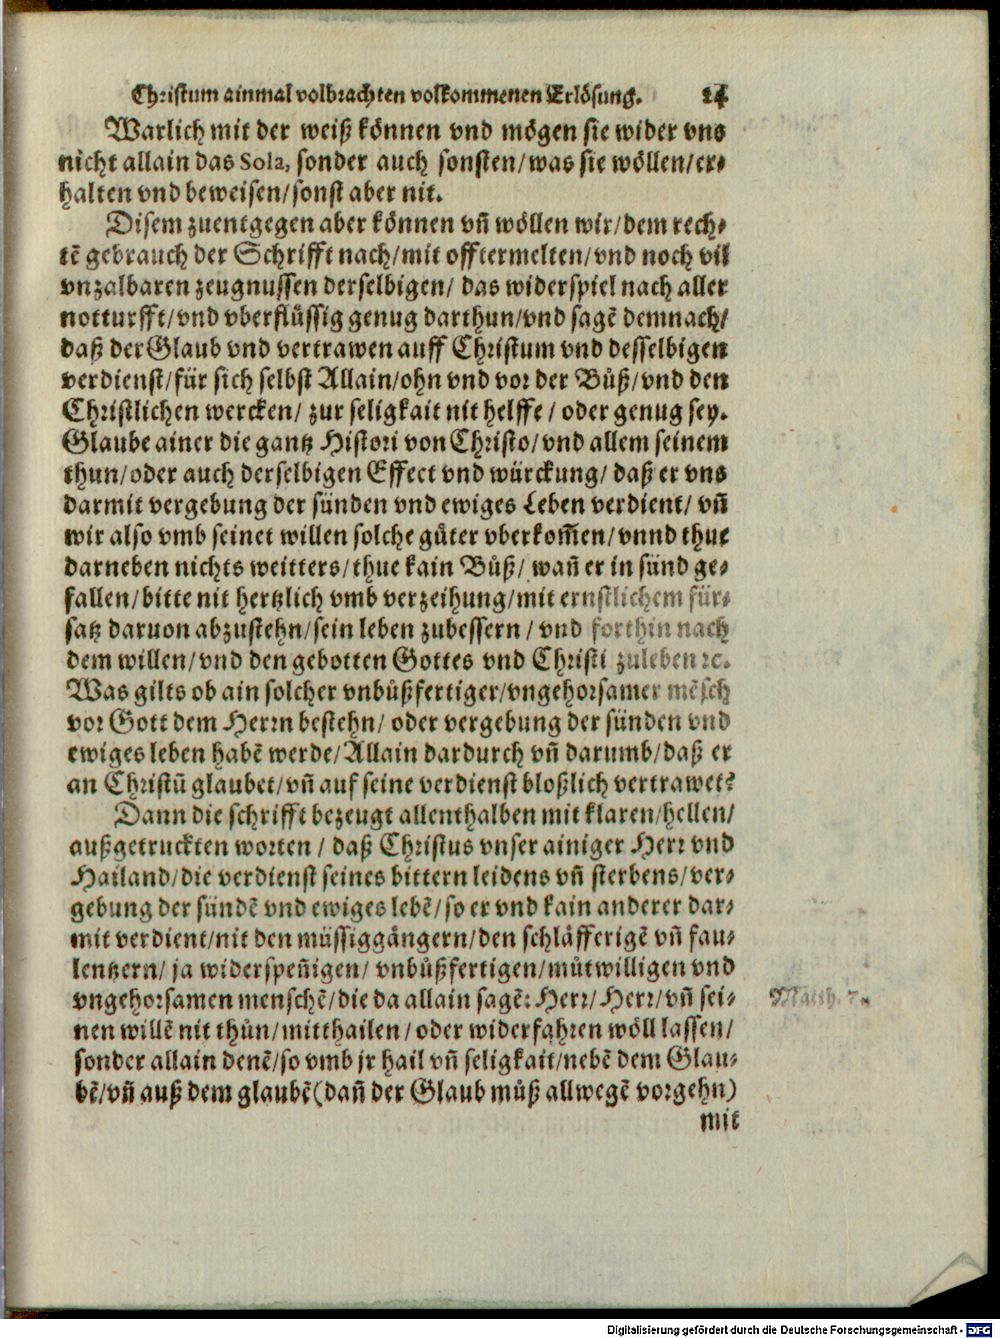 Christum ainmal volbrachten volkommenen Erlösung. 14
Warlich mit der weiß können vnd mögen sie wider vns
nicht allain das Sola, sonder auch sonsten/was sie wöllen/er⸗
halten vnd beweisen/sonst aber nit.
Disem zuentgegen aber können vñ wöllen wir/dem rech⸗
tẽ gebrauch der Schrifft nach/mit offtermelten/vnd noch vil
vnzalbaren zeugnussen derselbigen/ das widerspiel nach aller
notturfft/vnd vberflüssig genug darthun/vnd sagẽ demnach/
daß der Glaub vnd vertrawen auff Christum vnd desselbigen
verdienst/für sich selbst Allain/ohn vnd vor der Bůß/vnd den
Christlichen wercken/ zur seligkait nit helffe/ oder genug sey.
Glaube ainer die gantz Histori von Christo/vnd allem seinem
thun/oder auch derselbigen Effect vnd würckung/ daß er vns
darmit vergebung der sünden vnd ewiges Leben verdient/ vñ
wir also vmb seinet willen solche gůter vberkom̃en/vnnd thue
darneben nichts weitters/thue kain Bůß/ wañ er in sünd ge⸗
fallen/bitte nit hertzlich vmb verzeihung/mit ernstlichem für⸗
satz daruon abzustehn/sein leben zubessern/ vnd forthin nach
dem willen/vnd den gebotten Gottes vnd Christi zuleben ꝛc.
Was gilts ob ain solcher vnbůßfertiger/vngehorsamer mẽsch
vor Gott dem Herrn bestehn/ oder vergebung der sünden vnd
ewiges leben habẽ werde/Allain dardurch vñ darumb/daß er
an Christũ glaubet/vñ auf seine verdienst bloßlich vertrawet?
Dann die schrifft bezeugt allenthalben mit klaren/hellen/
außgetruckten worten/ daß Christus vnser ainiger Herr vnd
Hailand/die verdienst seines bittern leidens vñ sterbens/ver⸗
gebung der sündẽ vnd ewiges lebẽ/so er vnd kain anderer dar⸗
mit verdient/nit den müssiggängern/den schläfferigẽ vñ fau⸗
lentzern/ ja widerspeñigen/ vnbůßfertigen/můtwilligen vnd
vngehorsamen menschẽ/die da allain sagẽ: Herr/ Herr/vñ sei⸗ Matth. 7.
nen willẽ nit thůn/mitthailen/ oder widerfahren wöll lassen/
sonder allain denẽ/so vmb jr hail vñ seligkait/nebẽ dem Glau⸗
bẽ/vñ auß dem glaubẽ(dañ der Glaub můß allwegẽ vorgehn)
mit
Digitalisierung gefördert durch die Deutsche Forschungsgemeinschaft - DFG